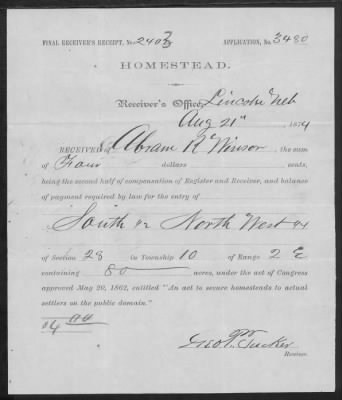 FINAL RECEIVER'S RECEIPT, No. 2403
APPLICATION, No. 3480
HOMESTEAD.
Receiver's Office, Lincoln Neb
Aug 21st, 1874
RECEIVED of Abram R Winsor, the sum
of Four dollars cents,
being the second half of compensation of Register and Receiver, and balance
of payment required by law for the entry of
South 1/2 North West 1/4
of Section 28 in Township 10 of Range 2 E
containing 80 acres, under the act of Congress
approved May 20, 1862, entitled "An act to secure homesteads to actual
settlers on the public domain."
$4 00
Geo P. Tucker
Receiver.